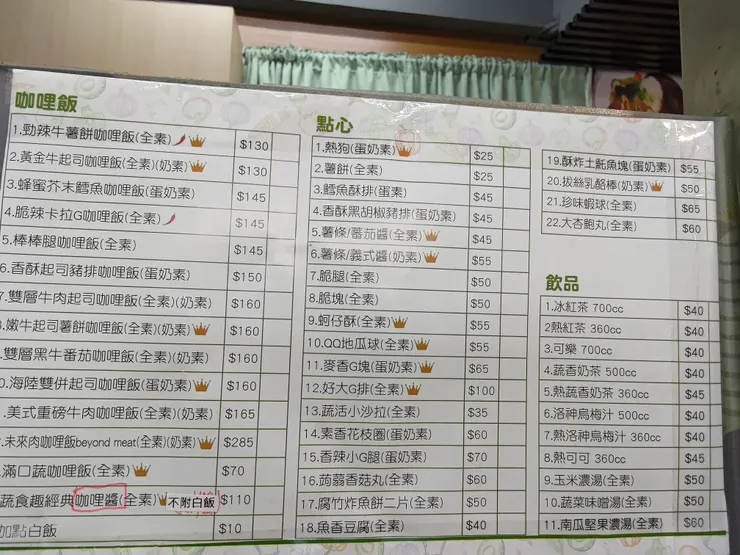 咖哩飯
1.勁辣牛薯餅咖哩飯(全素) $130
2.黃金牛起司咖哩飯(全素)(奶素) $130
3.蜂蜜芥末鱈魚咖哩飯(蛋奶素) $145
4.脆辣卡拉G咖哩飯(全素) $145
5.棒棒腿咖哩飯(全素) $145
6.香酥起司豬排咖哩飯(蛋奶素) $150
7.雙層牛肉起司咖哩飯(全素)(奶素) $160
.嫩牛起司薯餅咖哩飯(全素)(奶素) $160
.雙層黑牛番茄咖哩飯(全素)(奶素) $160
0.海陸雙併起司咖哩飯(蛋奶素) $160
.美式重磅牛肉咖哩飯(全素)(奶素) $165
.未來肉咖哩飯beyond meat(全素)(奶素) $285
.滿口蔬咖哩飯(全素) $70
蔬食趣經典咖哩醬(全素) 不附白飯 $110
加點白飯 $10
點心
1.熱狗(蛋奶素) $25
2.薯餅(全素) $25
3.鱈魚酥排(蛋素) $45
4.香酥黑胡椒豬排(蛋奶素) $45
5.薯條/蕃茄醬(全素) $45
6.薯條/義式醬(奶素) $55
7.脆腿(全素) $50
8.脆塊(全素) $50
9.蚵仔酥(全素) $55
10.QQ地瓜球(全素) $55
11.麥香G塊(蛋奶素) $65
12.好大G排(全素) $100
13.蔬活小沙拉(全素) $35
14.素香花枝圈(蛋奶素) $60
15.香辣小G腿(蛋奶素) $70
16.蒟蒻香菇丸(全素) $60
17.腐竹炸魚餅二片(全素) $50
18.魚香豆腐(全素) $40
19.酥炸土魠魚塊(蛋奶素) $55
20.拔絲乳酪棒(奶素) $50
21.珍味蝦球(全素) $65
22.大杏鮑丸(全素) $60
飲品
1.冰紅茶 700cc $40
2熱紅茶 360cc $40
3.可樂 700cc $40
4.蔬香奶茶 500cc $40
5.熱蔬香奶茶 360cc $45
6.洛神烏梅汁 500cc $40
7.熱洛神烏梅汁 360cc $45
8.熱可可 360cc $45
9.玉米濃湯(全素) $50
10.蔬菜味噌湯(全素) $50
11.南瓜堅果濃湯(全素) $60